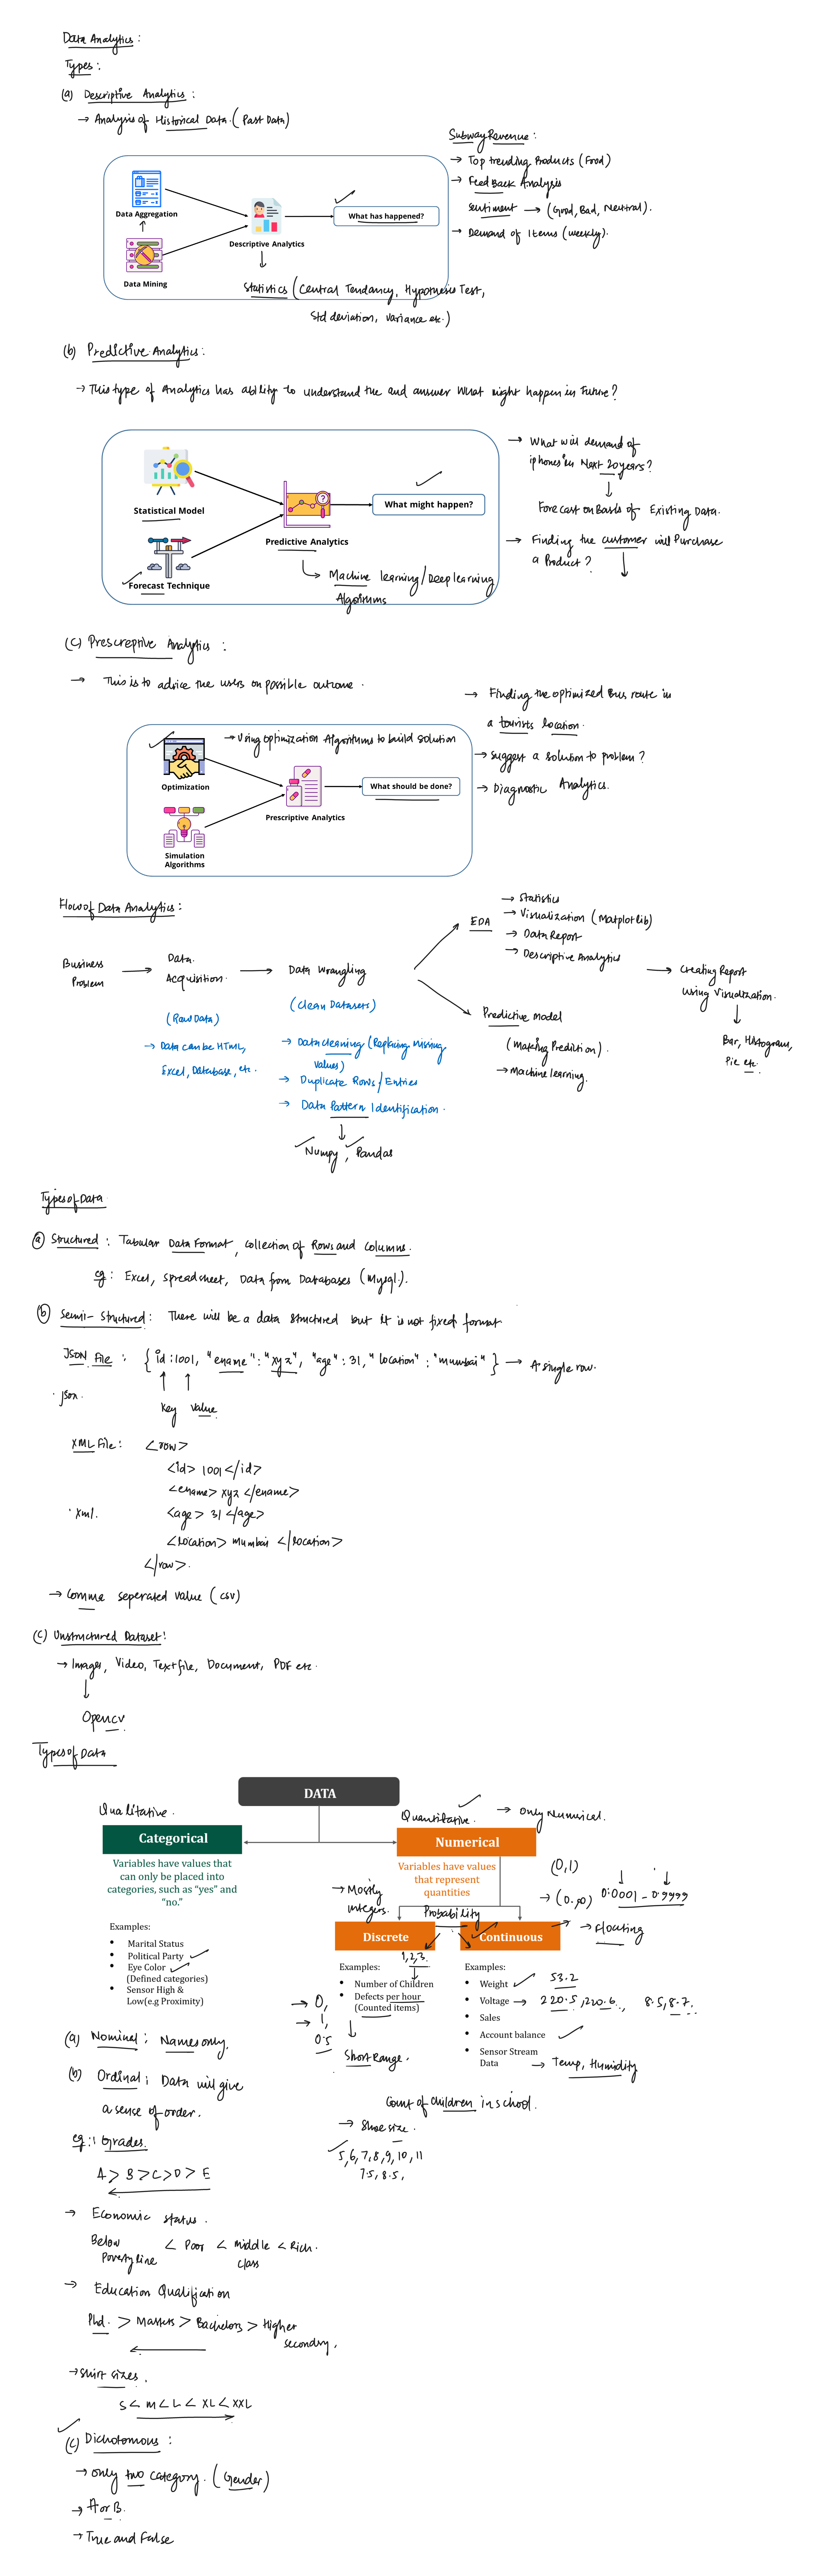 Data Analytics :
Types :
(a) Descriptive Analytics :
→ Analysis of Historical Data. (Past Data)
Subway Revenue :
→ Top trending Products (Food)
→ Feed Back Analysis
Sentiment → (Good, Bad, Neutral).
→ Demand of Items (weekly).
Data Aggregation
Data Mining
Descriptive Analytics
What has happened?
Statistics (Central Tendancy, Hypothesis Test,
Std deviation, variance etc.)
(b) Predictive Analytics :
→ This type of Analytics has ability to understand the and answer What might happen in Future?
Statistical Model
Forecast Technique
Predictive Analytics
What might happen?
→ Machine learning / Deep learning
Algorithms
→ What will demand of
iphones in Next 20 years?
Forecast on Basis of Existing Data.
→ Finding the customer will Purchase
a Product?
(C) Prescreptive Analytics :
→ This is to advice the users on possible outcome.
→ Using optimization Algorithms to build solution
Optimization
Simulation
Algorithms
Prescriptive Analytics
What should be done?
→ Finding the optimized Bus route in
a tourists location.
→ Suggest a solution to problem?
→ Diagnostic Analytics.
Flow of Data Analytics :
Business
Problem
→ Data
Acquisition.
→ Data Wrangling
(Raw Data)
→ Data can be HTML,
Excel, Database, etc.
(Clean Datasets)
→ Data cleaning (Replacing missing
values)
→ Duplicate Rows / Entries
→ Data Pattern Identification.
Numpy, Pandas
EDA
→ Statistics
→ Visualization (Matplotlib)
→ Data Report
→ Descriptive Analytics
Predictive Model
(Making Prediction).
→ Machine learning.
→ Creating Report
using Visualization.
Bar, Histogram,
Pie etc.
Types of Data
(a) Structured : Tabular Data Format, collection of Rows and columns.
eg : Excel, spreadsheet, Data from Databases (Mysql.).
(b) Semi-Structured : There will be a data structured but it is not fixed format
JSON File : { id : 1001, "ename" : "xyz", "age" : 31, "location" : "mumbai" } → A single row.
.json.
key value
XML File : <row>
<id> 1001 </id>
<ename> xyz </ename>
.xml. <age> 31 </age>
<location> mumbai </location>
</row>.
→ Comma seperated value (csv)
(c) Unstructured Dataset :
→ Images, Video, Text file, Document, PDF etc.
Opencv
Types of Data
DATA
Qualitative.
Categorical
Variables have values that
can only be placed into
categories, such as “yes” and
“no.”
Examples:
• Marital Status
• Political Party
• Eye Color
(Defined categories)
• Sensor High &
Low(e.g Proximity)
Quantitative. → only Numerical.
Numerical
Variables have values
that represent
quantities
→ Mostly
integers.
Probability
(0,1)
→ (0,∞) 0.0001 - 0.9999
→ Floating
Discrete
1,2,3.
Examples:
• Number of Children
• Defects per hour
(Counted items)
→ 0,
→ 1,
0.5
Short Range.
Continuous
Examples:
• Weight 53.2
• Voltage → 220.5, 220.6, 8.5, 8.7.
• Sales
• Account balance
• Sensor Stream
Data → Temp, Humidity
Count of children in school.
→ Shoe size.
5,6,7,8,9,10,11
7.5, 8.5,
(a) Nominal ; Names only.
(b) Ordinal ; Data will give
a sense of order.
eg : 1 Grades.
A > B > C > D > E
→ Economic status.
Below
Poverty line < Poor < middle
class < Rich.
→ Education Qualification
Phd. > Masters > Bachelors > Higher
secondry.
→ Shirt sizes.
S < M < L < XL < XXL
(c) Dichotomous :
→ only two category. (Gender)
→ A or B.
→ True and False